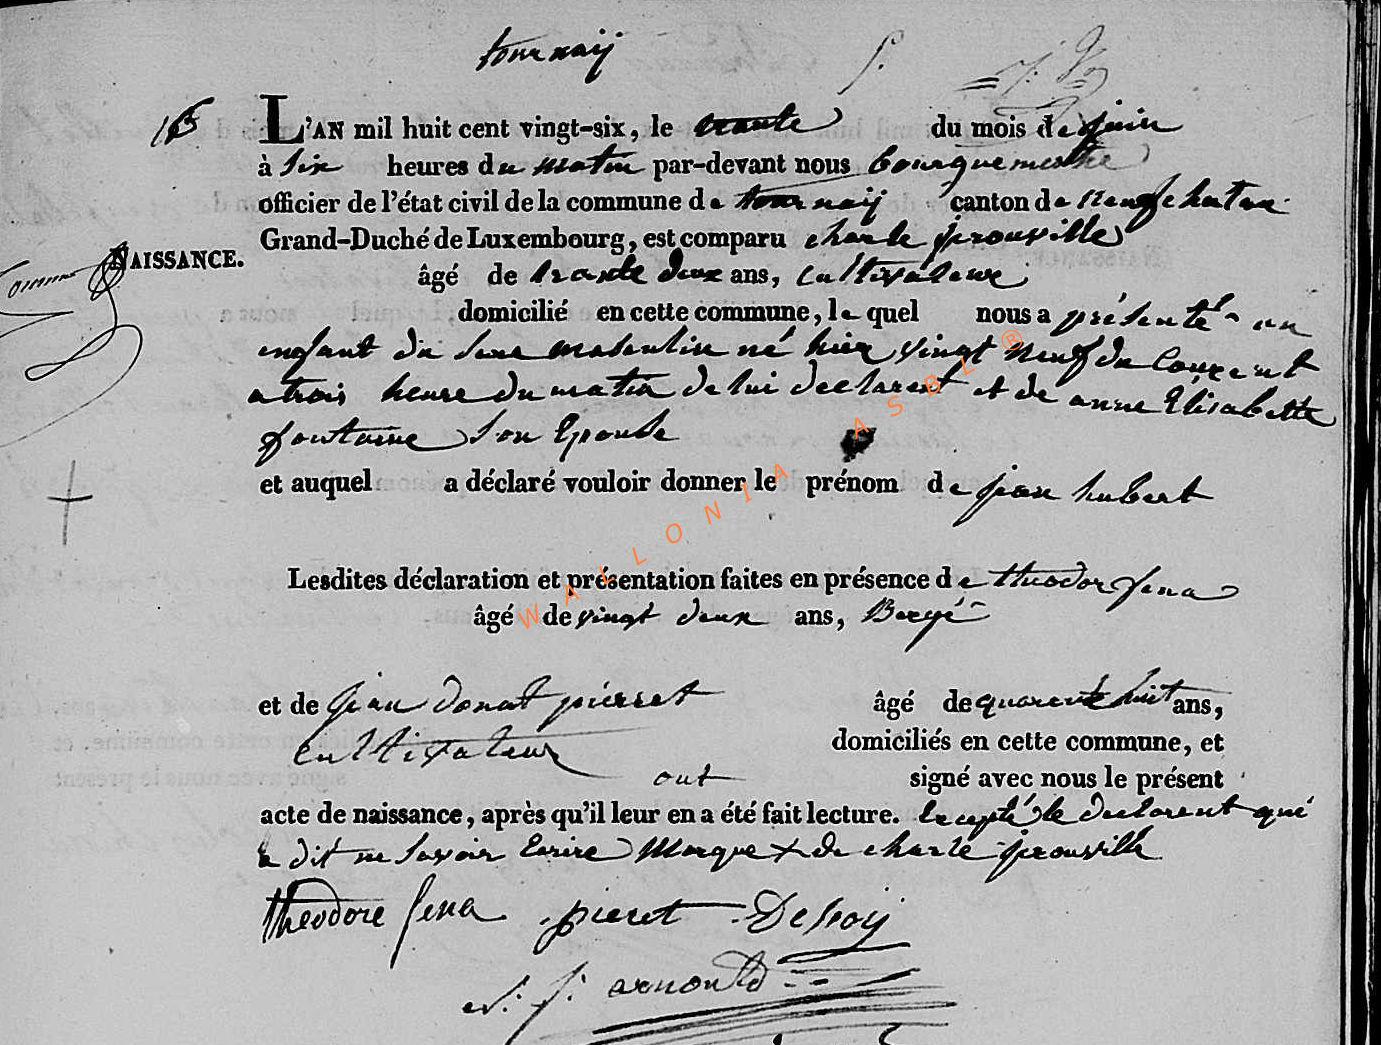 tournaij
L'AN mil huit cent vingt-six, le trante du mois de juin
à six heures du matin par-devant nous bourguemestre
officier de l'état civil de la commune de tournaij canton de neufchateau
Grand-Duché de Luxembourg, est comparu charle prouville
NAISSANCE.
âgé de trante deux ans, cultivateur
domicilié en cette commune, le quel nous a présenté un
enfant du sexe masculin né hier vingt neuf du courant
a trois heure du matin de lui declarent et de anne Elisabette
fontaine son Epouse
et auquel a déclaré vouloir donner le prénom de jean hubert
Lesdites déclaration et présentation faites en présence de theodor jena
âgé de vingt deux ans, Bergé
et de jean donat pierret âgé de quarente huit ans,
cultivateur domiciliés en cette commune, et
ont signé avec nous le présent
acte de naissance, après qu'il leur en a été fait lecture. Excepté le declarent qui
a dit ne savoir Ecrire Marque + de charle prouville
theodore jena pieret
arnould
WALLONIA ASBL ®